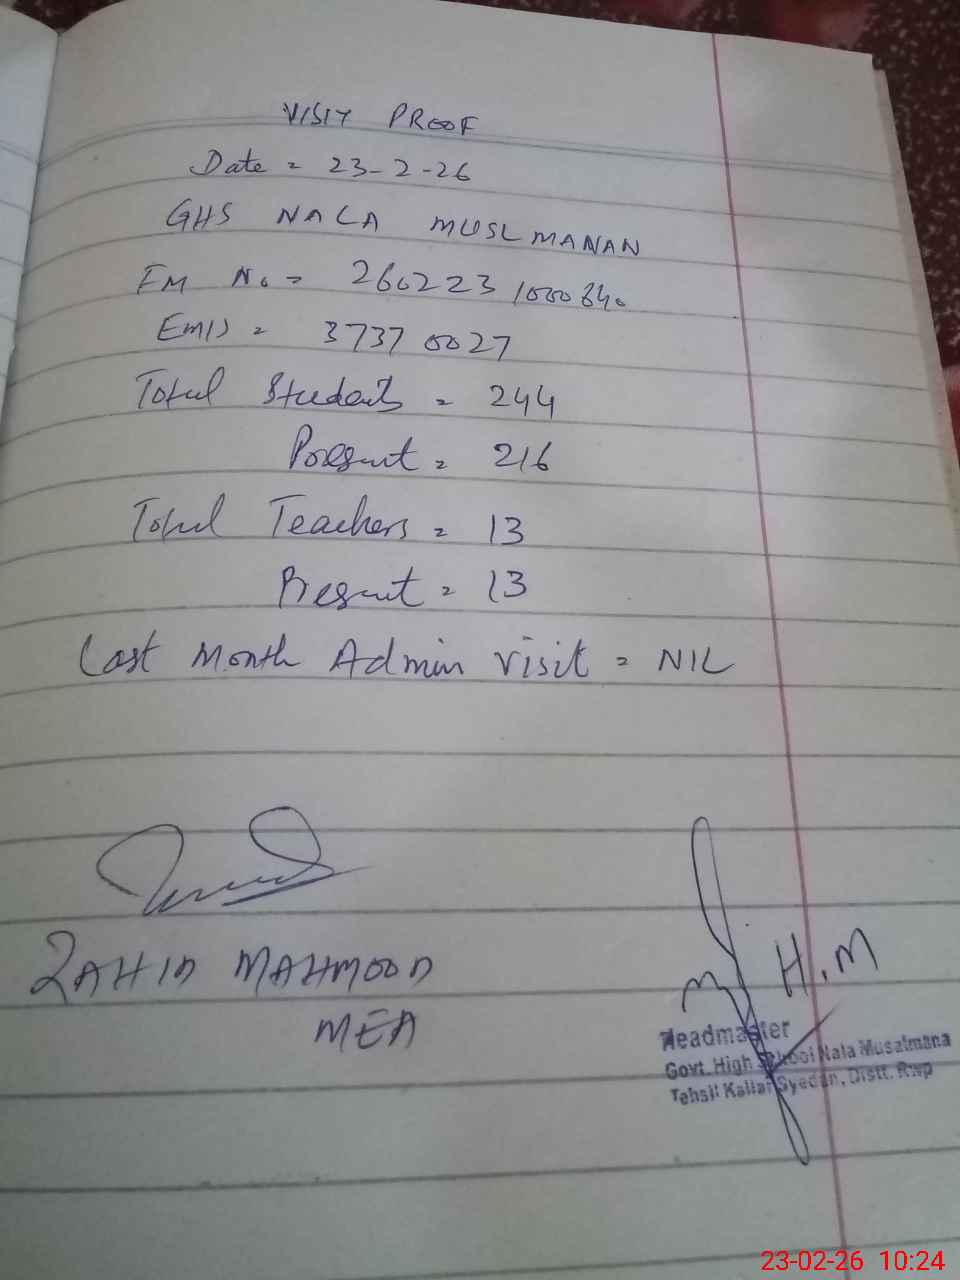 VISIT PROOF
Date = 23-2-26
GHS NALA MUSLMANAN
FM No = 260223 1000640
EMIS = 37370027
Total Students = 244
Present = 216
Total Teachers = 13
Present = 13
Last Month Admin Visit = NIL
ZAHID MAHMOOD
MEA
H.M
Headmaster
Govt. High School Nala Musalmana
Tehsil Kallar Syedan, Distt. Rwp
23-02-26 10:24